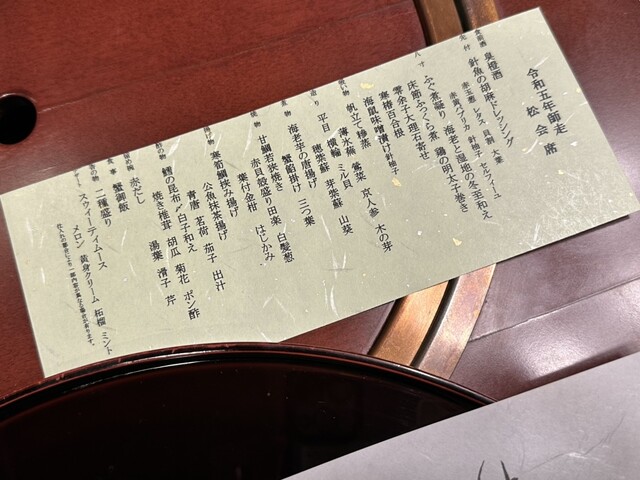 令和五年師走
松会席
食前酒 臭橙酒
先付 針魚の胡麻ドレッシング
赤玉葱 レタス 貝割 大葉
赤黄パプリカ 針柚子 セルフィーユ
八寸 ふぐ煮凝り 海老と湿地の冬至和え
床節ふっくら煮 鶏の明太子巻き
零余子大理石寄せ
寒椿百合根
海鼠味噌漬け 針柚子
吸い物 帆立て糝蒸
薄氷蕪 鶯菜 京人参 木の芽
造り 平目 横輪 ミル貝
穂紫蘇 芽紫蘇 山葵
煮物 海老芋の唐揚げ
蟹餡掛け 三つ葉
焼物 甘鯛若狭焼き
赤貝殻盛り田楽 白髪葱
葉付金柑 はじかみ
揚げ物 寒筍鯛挟み揚げ
公魚抹茶揚げ
青唐 茗荷 茄子 出汁
酢の物 鱈の昆布〆白子和え
焼き椎茸 胡瓜 菊花 ポン酢
湯葉 滑子 芹
赤だし
食事 蟹御飯
香の物 二種盛り
デザート スウィーティムース
メロン 黄身クリーム 柘榴 ミント
仕入れの都合により一部内容が異なる場合が有ります。